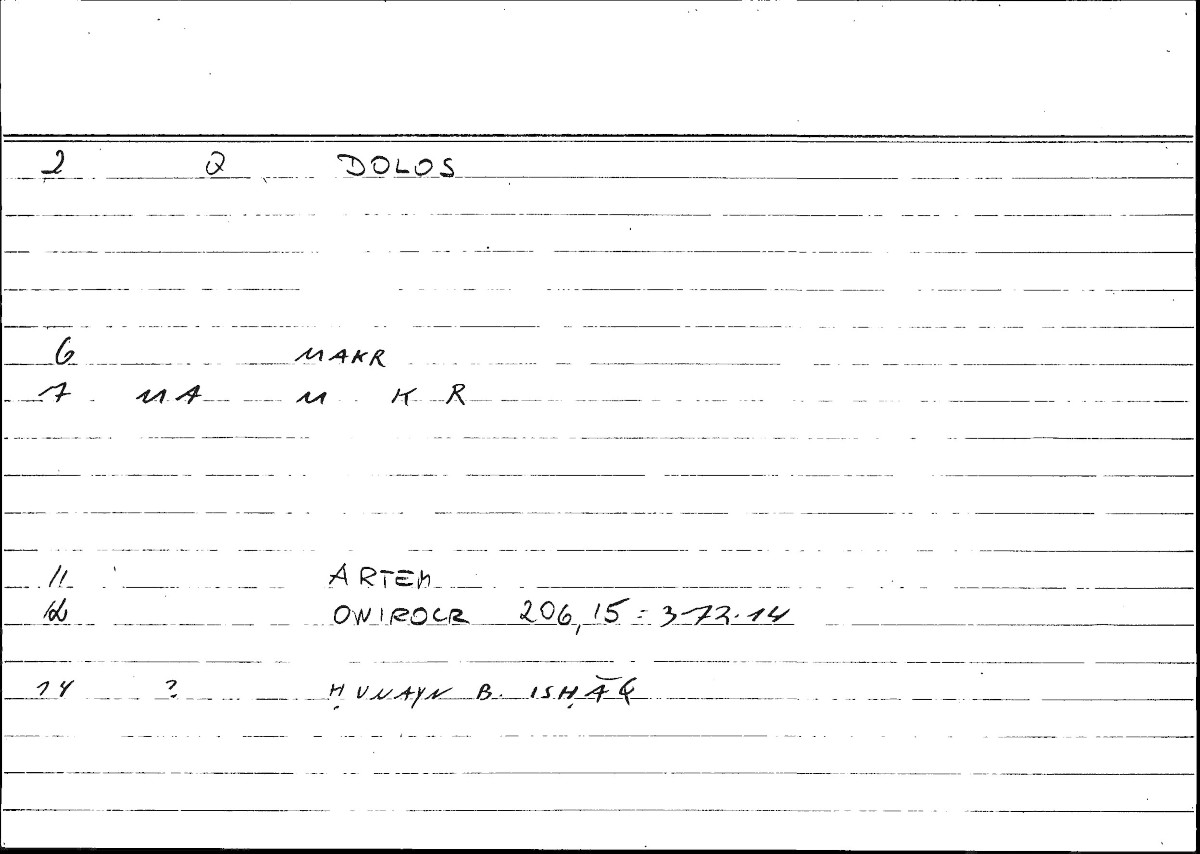 2 Q DOLOS
6 MAKR
7 MA M K R
11 ARTEM
12 ONIROCR 206,15 = 372.14
14 ? ḤUNAYN B. ISḤĀQ